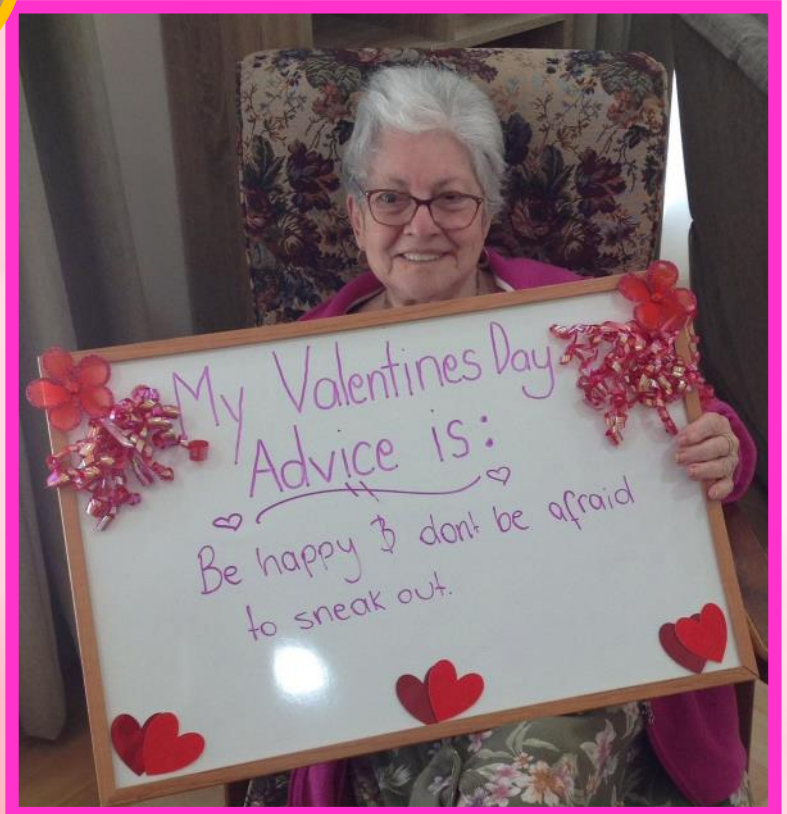 My Valentines Day
Advice is:
Be happy & dont be afraid
to sneak out.